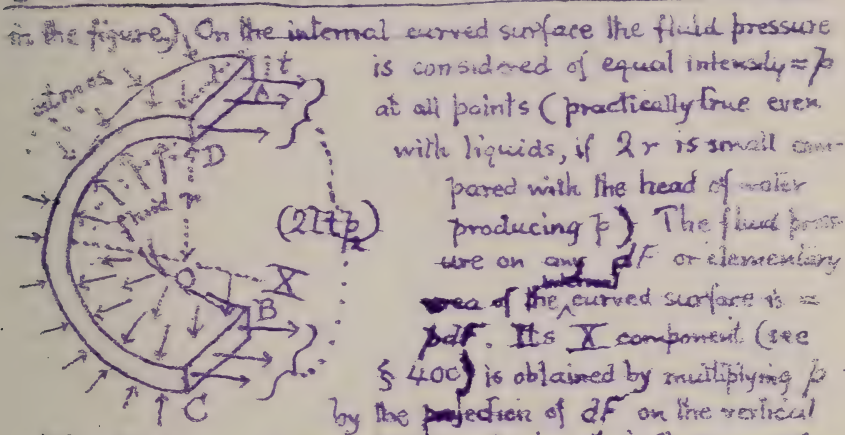 in the figure). On the internal curved surface the fluid pressure
is considered of equal intensity = p
at all points (practically true even
with liquids, if 2r is small com-
pared with the head of water
producing p) The fluid press-
ure on any dF or elementary
internal
area of the curved surface is =
pdF. Its X component (see
§ 400) is obtained by multiplying p
by the projection of dF on the vertical
atmos
r
t
A
D
fluid
(2ltp₂)
O
X
B
C